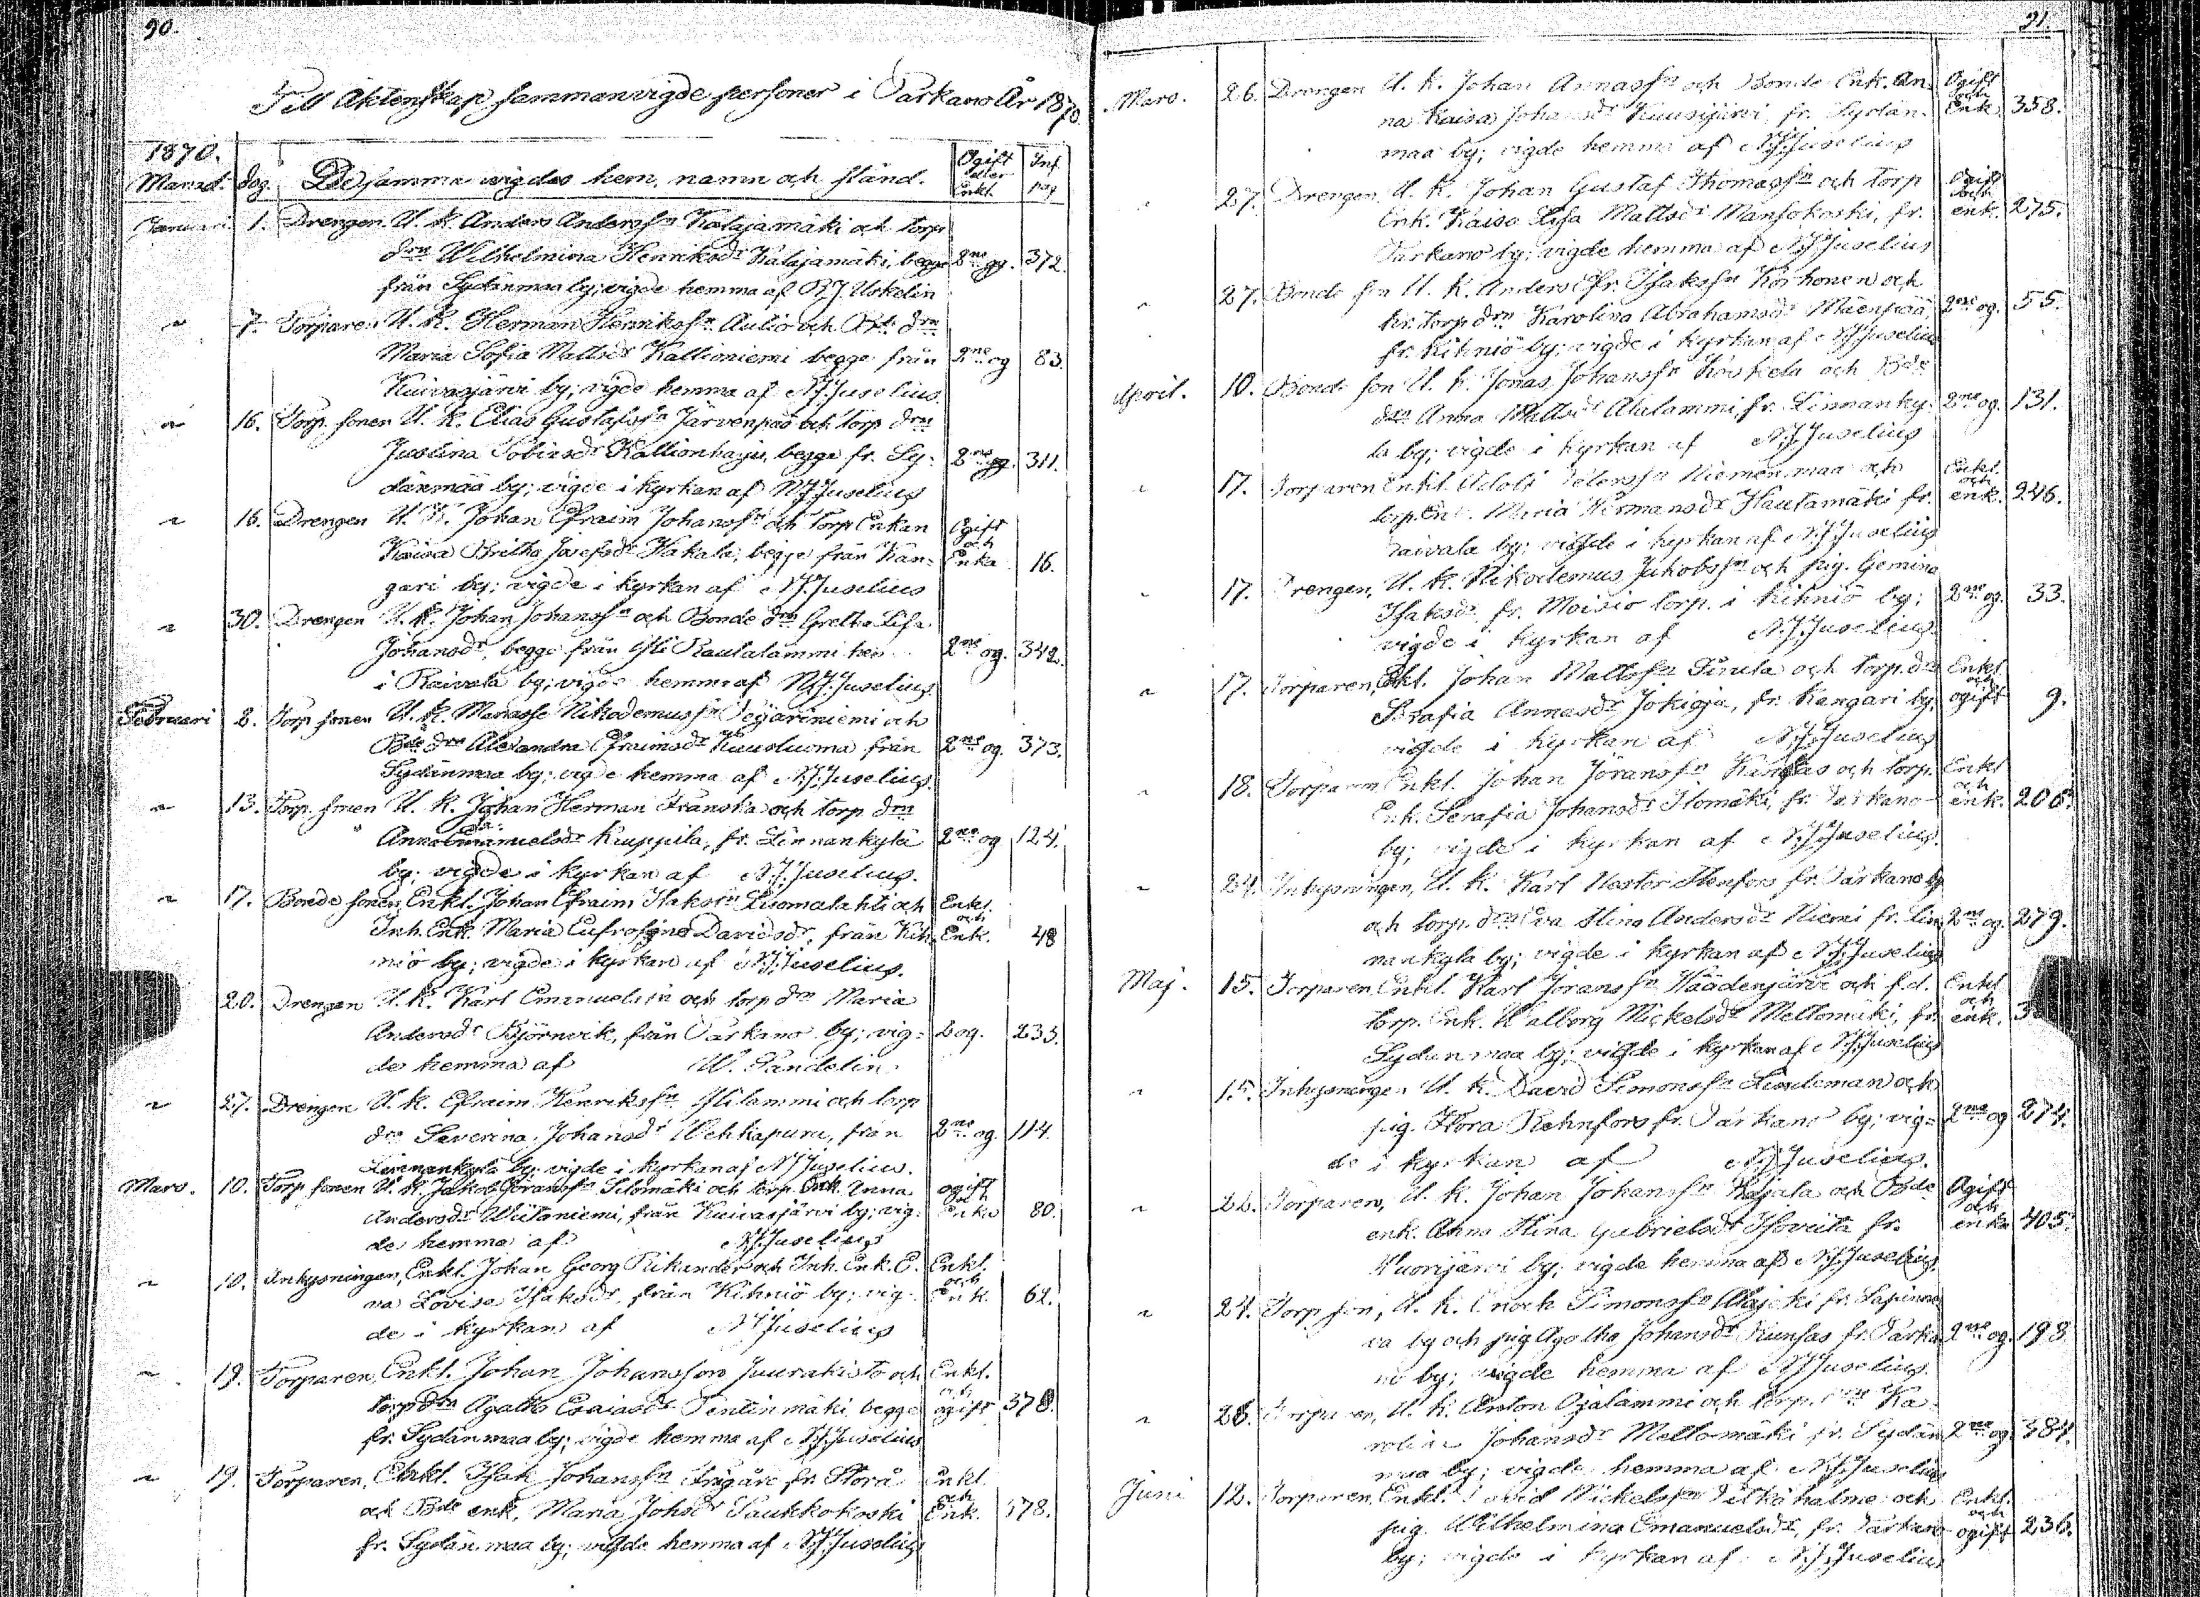 90.
Till Äktenskap sammanvigde personer i Parkano År 1870.
1870.
Månad. dag. De samma vigdes hem, namn och stånd. Ogift eller Enkl. Inf. pag
Januari 1. Drengen U. k. Anders Anderss:n Kalajamäki och torp
d:rn Wilhelmina Henriksd:r Kalajamäki, begge 2:ne og. 372.
från Sydänmaa by; vigde hemma af
" 7. Torparen U. k. Herman Henrikss:n Aulio och B:de d:rn
Maria Sofia Mattsd:r Kallioniemi begge från 2:ne og 83.
Kuivasjärvi by; vigde hemma af N.J.Juselius
" 16. Torp. sonen U. k. Elias Gustafss:n Järvenpää och torp d:rn
Justina Tobiasd:r Kallionharju, begge fr. Sy- 2:ne og. 311.
dänmaa by; vigde i kyrkan af N.J.Juselius
" 16. Drengen U. k. Johan Efraim Johanss:n och Torp Enkan Ogift och
Kaisa Britha Josefsd:r Kakala, begge från Kan- Enka 16.
gari by; vigde i kyrkan af N.J.Juselius
" 30. Drengen U. k. Johan Johanss:n och Bonde d:rn Gretha Lisa
Johansd:r, begge från Yli Rautalammi hem 2:ne og. 342.
i Raivala by; vigde hemma af N.J.Juselius.
Februari 2. Torp sonen U. k. Manasse Nikodemuss:n och
B:de d:rn Alexandra Efraimsd:r Kuusluoma från 2:ne og. 373.
Sydänmaa by; vigde hemma af N.J.Juselius.
" 13. Torp. sonen U. k. Johan Herman Franska och torp d:rn
Anna Emanuelsd:r Kuppila, fr. Linnankylä 2:ne og 124.
by; vigde i kyrkan af N.J.Juselius.
" 17. Bonde sonen, Enkl. Johan Efraim Isakss:n Luomalahti och Enkl. och
Inh. Enk. Maria Eufrosyne Davidsd:r, från Kih- Enk. 48
niö by; vigde i kyrkan af N.J.Juselius.
20. Drengen U. k. Karl Emanuelss:n och torp d:rn Maria
Andersd:r Björnvik, från Parkano by; vig- 2 og. 233.
de hemma af W. Pandelin
" 27. Drengen U. k. Efraim Henrikss:n Ylilammi och torp
d:rn Severina Johansd:r Wehkapuru, från 2:ne og. 114.
Linnankylä by; vigde i kyrkan af N.J.Juselius.
Mars. 10. Torp sonen U. k. Jakob Göranss:n Silomäki och torp. Enk. Anna ogift och
Andersd:r Wiitaniemi, från Kuivasjärvi by; vig- Enka 80.
de hemma af N.J.Juselius
" 10. Inhysningen, Enkl. Johan Georg Rikander och Inh. Enk. E- Enkl. och
va Lovisa Isaksd:r från Kihniö by; vig- Enk. 62.
de i kyrkan af N.J.Juselius
" 19. Torparen, Enkl. Johan Johansson Juurakisto och Enkl. och
torp d:rn Agatha Esaiasd:r Pentinmäki begge ogift 378.
fr. Sydänmaa by; vigde hemma af N.J.Juselius
" 19. Torparen, Enkl. Isak Johanss:n fr. Storå Enkl. och
och B:de enk. Maria Johsd:r Paukkokoski Enk. 378.
fr. Sydänmaa by; vigde hemma af N.J.Juselius
91.
Mars. 26. Drengen U. k. Johan Annass:n och Bonde Enk. An- Ogift och
na Kaisa Johansd:r Kuusijärvi, fr. Sydän- Enk. 358.
maa by; vigde hemma af N.J.Juselius
" 27. Drengen, U. k. Johan Gustaf Thomass:n och torp Ogift och
Enk. Kaisa Lisa Mattsd:r Mansokoski, fr. enk. 275.
Parkano by; vigde hemma af N.J.Juselius
" 27. Bonde son U. k. Anders Efr. Isakss:n Korhonen och
torp d:rn Karolina Abrahamsd:r Mäenpää 2:ne og. 55.
fr. Kihniö by; vigde i kyrkan af N.J.Juselius
April. 10. Bonde son U. k. Jonas Johanss:n Koskela och B:de
d:rn Anna Mattsd:r Alalammi, fr. Linnanky- 2:ne og. 131.
lä by; vigde i kyrkan af N.J.Juselius
" 17. Torparen Enkl. Adolf Niemenmaa och Enkl. och
torp. Enk. Maria Hermansd:r Hautamäki fr. enk. 246.
Raivala by; vigde i kyrkan af N.J.Juselius
" 17. Drengen, U. k. Nikodemus Jakobss:n och pig. Gemina
Isaksd:r fr. Moisio torp. i Kihniö by; 2:ne og. 33.
vigde i kyrkan af N.J.Juselius
" 17. Torparen, Enkl. Johan Mattss:n och torp. d:rn Enkl och
Serafia Annasd:r Jokioja, fr. Kangari by; ogift 9.
vigde i kyrkan af N.J.Juselius
" 18. Torparen, Enkl. Johan Göranss:n Kangas och torp. Enkl och
Enk. Serafia Johansd:r Ilomäki, fr. Parkano enk. 206.
by; vigde i kyrkan af N.J.Juselius.
" 24. Inhysningen, U. k. Karl Nestor Stenfors fr. Parkano by
och torp. d:rn Eva Stina Andersd:r Niemi fr. Lin- 2:ne og. 279.
nankylä by; vigde i kyrkan af N.J.Juselius
Maj. 15. Torparen, Enkl. Karl Göranss:n Häädenjärvi och f.d. Enkl och
torp. Enk. Walborg Mickelsd:r Mettomäki, fr. enk.
Sydänmaa by; vigde i kyrkan af N.J.Juselius
" 15. Inhysningen U. k. David Simonss:n Lindeman och
pig. Flora Rehnfors fr. Parkano by; vig- 2:ne og 274.
de i kyrkan af N.J.Juselius.
" 22. Torparen, U. k. Johan Johanss:n och B:de Ogift och
enk. Anna Stina Gabrielsd:r fr. enka 405.
Vuorijärvi by; vigde hemma af N.J.Juselius.
" 24. Torp son, U. k. Enoch Simonss:n Alajoki fr. Lapinne-
va by och pig Agatha Johansd:r Kunsas fr. Parka- 2:ne og. 193
no by; vigde hemma af N.J.Juselius.
" 28. Torparen, U. k. Anton Ojalammi och torp. d:rn Ka-
rolina Johansd:r Mettomäki fr. Sydän- 2:ne og. 384.
maa by; vigde hemma af N.J.Juselius
Juni 12. Torparen, Enkl. David Mickelss:n Pitkähalme och Enkl. och
pig. Wilhelmina Emanuelsd:r, fr. Parkano ogift 236.
by; vigde i kyrkan af N.J.Juselius